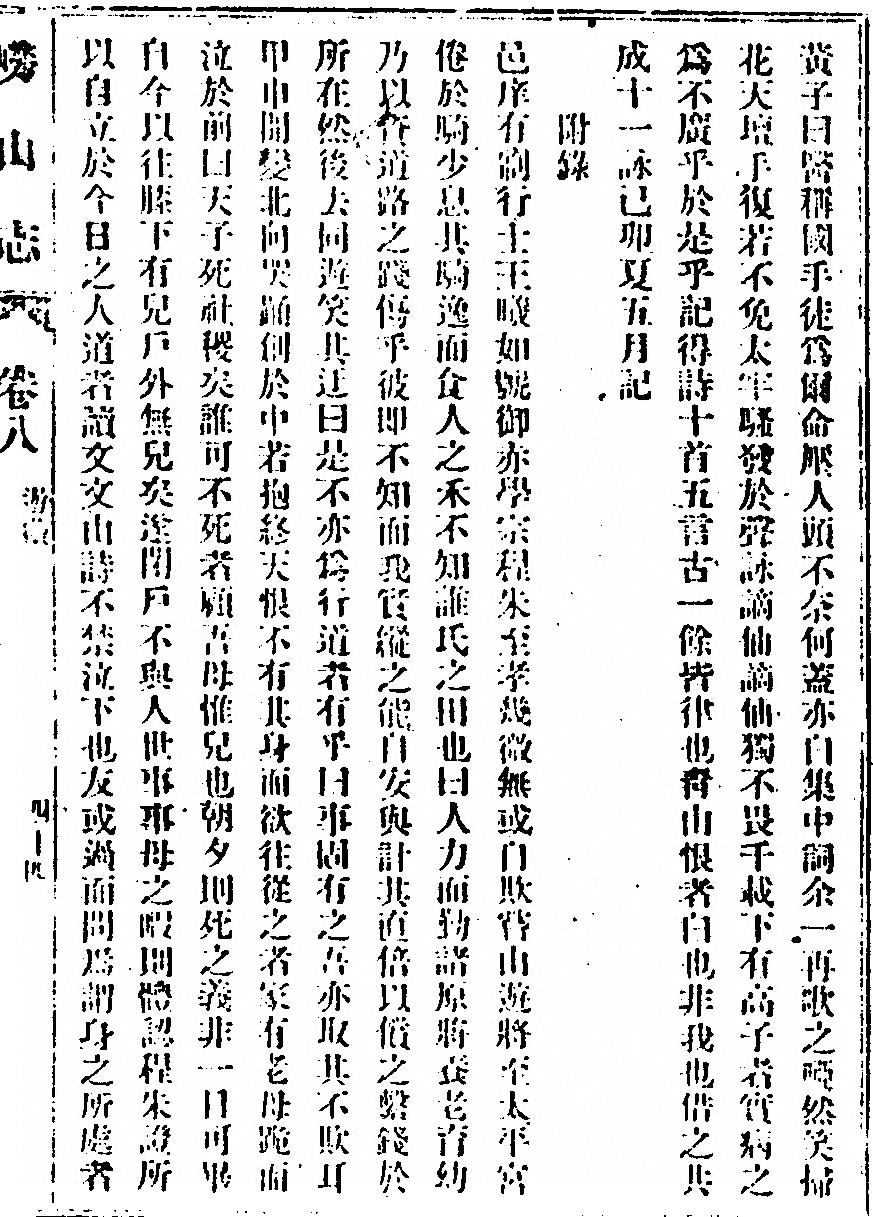 黃子曰醫稱國手徒爲爾命壓人頭不奈何蓋亦白集中詞余一再歌之啞然笑掃
花天壇手復若不免太牢騷發於聲詠謫仙謫仙獨不畏千載下有高子者實病之
爲不廣乎於是乎記得詩十首五言古一餘皆律也齊山恨者白也非我也借之共
成十一詠己卯夏五月記
附錄
邑庠有制行士王曦如號御亦學宗程朱至孝幾微無或自欺嘗山遊將至太平宮
倦於騎少息其騎逸而食人之禾不知誰氏之田也曰人力而勤諸原將養老育幼
乃以資道路之踐傷乎彼即不知而我實縱之能自安與計其直倍以償之繫錢於
所在然後去同遊笑其迂曰是不亦爲行道者有乎曰事固有之吾亦取其不欺耳
甲申聞變北向哭踊創於中若抱終天恨不有其身而欲往從之者家有老母跪而
泣於前曰天子死社稷矣誰可不死者顧吾母惟兒也朝夕則死之義非一日可畢
自今以往膝下有兒戶外無兒矣遂閉戶不與人世事事母之暇則體認程朱證所
以自立於今日之人道者讀文文山詩不禁泣下也友或過而問焉謂身之所處者
嶗山志
卷八
游
四十四